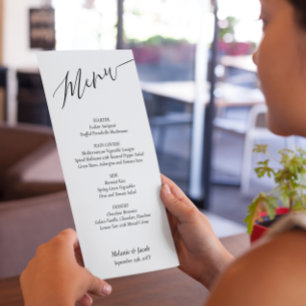 Menu
STARTER
Italian Antipasti
Stuffed Portobello Mushrooms
MAIN COURSE
Mediterranean Vegetable Lasagne
Spiced Halloumi with Roasted Pepper Salad
Green Beans, Aubergine and Tomato Stew
SIDE
Buttered Rice
Spring Green Vegetables
Feta and Tomato Salad
DESSERT
Chocolate Brownies
Gelato Vanilla, Chocolate,
Lemon Tart with Mixed Cream
Melanie & Jacob
September